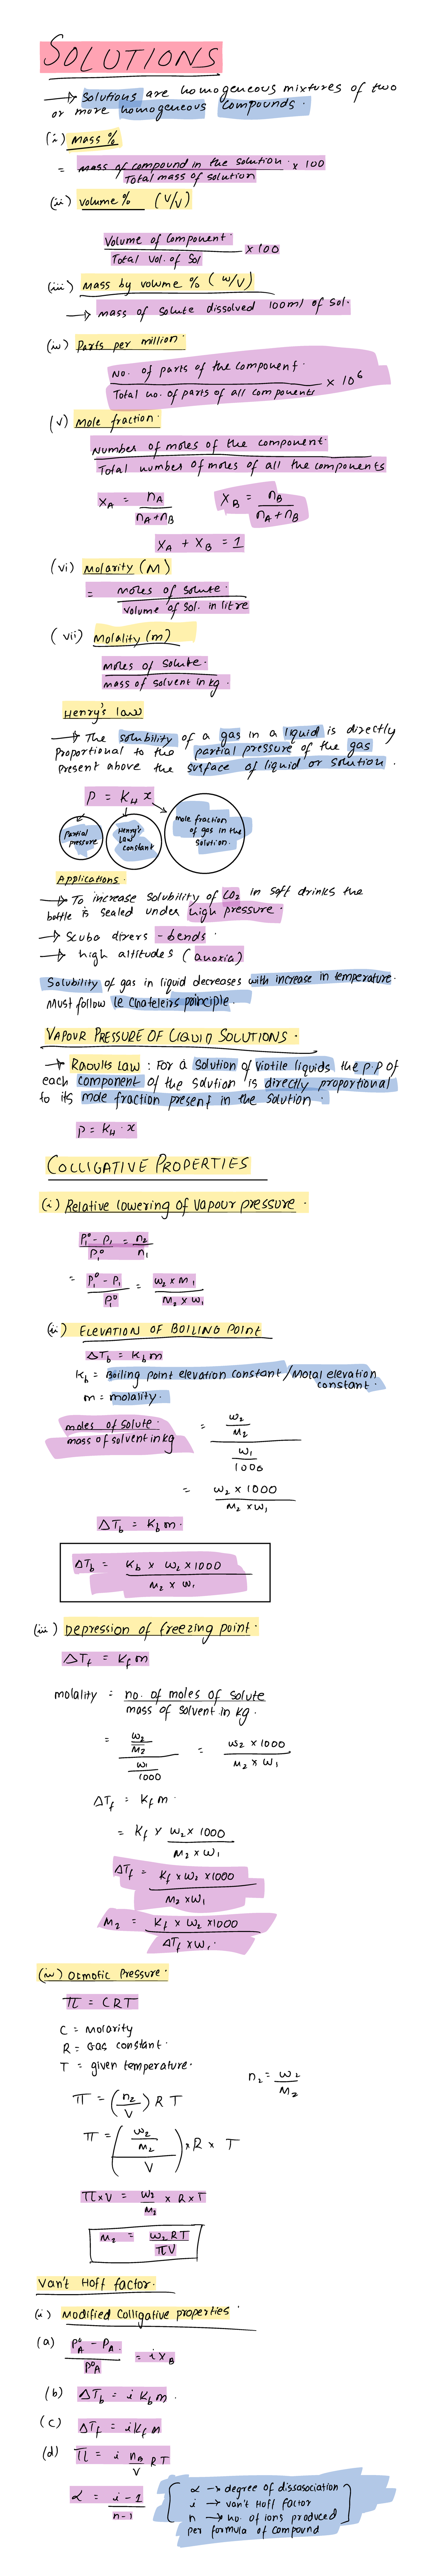 SOLUTIONS
→ Solutions are homogeneous mixtures of two
or more homogeneous compounds.
(i) Mass %
= mass of compound in the solution × 100
Total mass of solution
(ii) volume % (V/V)
Volume of Component × 100
Total Vol. of Sol
(iii) Mass by volume % (w/v)
→ mass of solute dissolved 100ml of Sol.
(iv) Parts per million.
No. of parts of the component. × 10⁶
Total no. of parts of all components
(v) Mole fraction.
Number of moles of the component.
Total number of moles of all the components
X_A = n_A / (n_A + n_B)   X_B = n_B / (n_A + n_B)
X_A + X_B = 1
(vi) Molarity (M)
= moles of solute.
Volume of Sol. in litre
(vii) Molality (m)
moles of solute.
mass of solvent in kg.
Henry's law
→ The solubility of a gas in a liquid is directly
proportional to the partial pressure of the gas
present above the surface of liquid or solution.
P = K_H x
Partial pressure
Henry's Law constant
mole fraction of gas in the solution.
Applications.
→ To increase solubility of CO₂ in soft drinks the
bottle is sealed under high pressure.
→ Scuba divers - bends.
→ high altitudes (anoxia)
Solubility of gas in liquid decreases with increase in temperature.
Must follow le Chateleirs principle.
VAPOUR PRESSURE OF LIQUID SOLUTIONS.
→ Raoults Law : For a solution of viotile liquids the p.p of
each component of the solution is directly proportional
to its mole fraction present in the solution.
P = K_H · x
COLLIGATIVE PROPERTIES
(i) Relative lowering of Vapour pressure.
(P₁⁰ - P₁) / P₁⁰ = n₂ / n₁
= (P₁⁰ - P₁) / P₁⁰ = (w₂ × M₁) / (M₂ × w₁)
(ii) ELEVATION OF BOILING POINT
ΔT_b = K_b m
K_b = Boiling point elevation constant / Molal elevation
constant.
m = molality.
moles of solute. / mass of solvent in kg = (w₂ / M₂) / (w₁ / 1000)
= (w₂ × 1000) / (M₂ × w₁)
ΔT_b = K_b m.
ΔT_b = (K_b × w₂ × 1000) / (M₂ × w₁)
(iii) Depression of freezing point.
ΔT_f = K_f m
molality = no. of moles of solute
mass of solvent in kg.
= (w₂ / M₂) / (w₁ / 1000) = (w₂ × 1000) / (M₂ × w₁)
ΔT_f = K_f m.
= K_f × (w₂ × 1000) / (M₂ × w₁)
ΔT_f = (K_f × w₂ × 1000) / (M₂ × w₁)
M₂ = (K_f × w₂ × 1000) / (ΔT_f × w₁)
(iv) Osmotic Pressure.
π = CRT
C = Molarity
R = Gas constant.
T = given temperature.
n₂ = w₂ / M₂
π = (n₂ / V) R T
π = ((w₂ / M₂) / V) × R × T
π × V = (w₂ / M₂) × R × T
M₂ = w₂RT / πV
Van't Hoff factor.
(i) Modified Colligative properties.
(a) (P⁰_A - P_A) / P⁰_A = i X_B
(b) ΔT_b = i K_b m.
(c) ΔT_f = i K_f m
(d) π = i (n_A / V) RT
α = (i - 1) / (n - 1)
α → degree of dissasociation
i → van't Hoff factor
n → no. of ions produced
per formula of compound